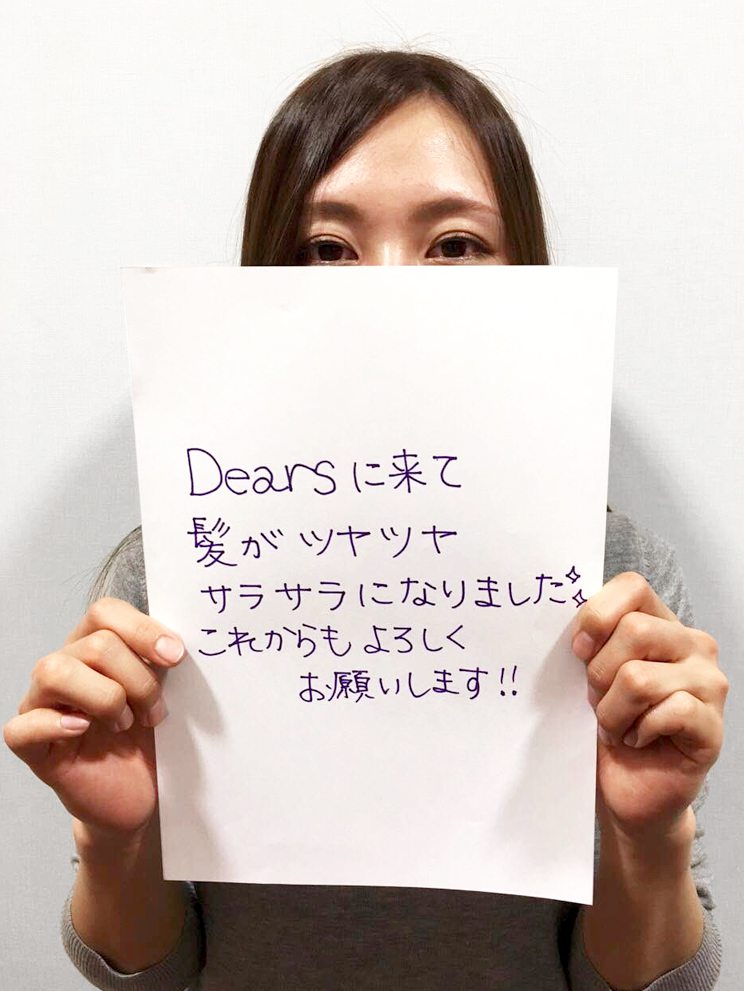 Dearsに来て
髪がツヤツヤ
サラサラになりました✨
これからもよろしく
お願いします!!